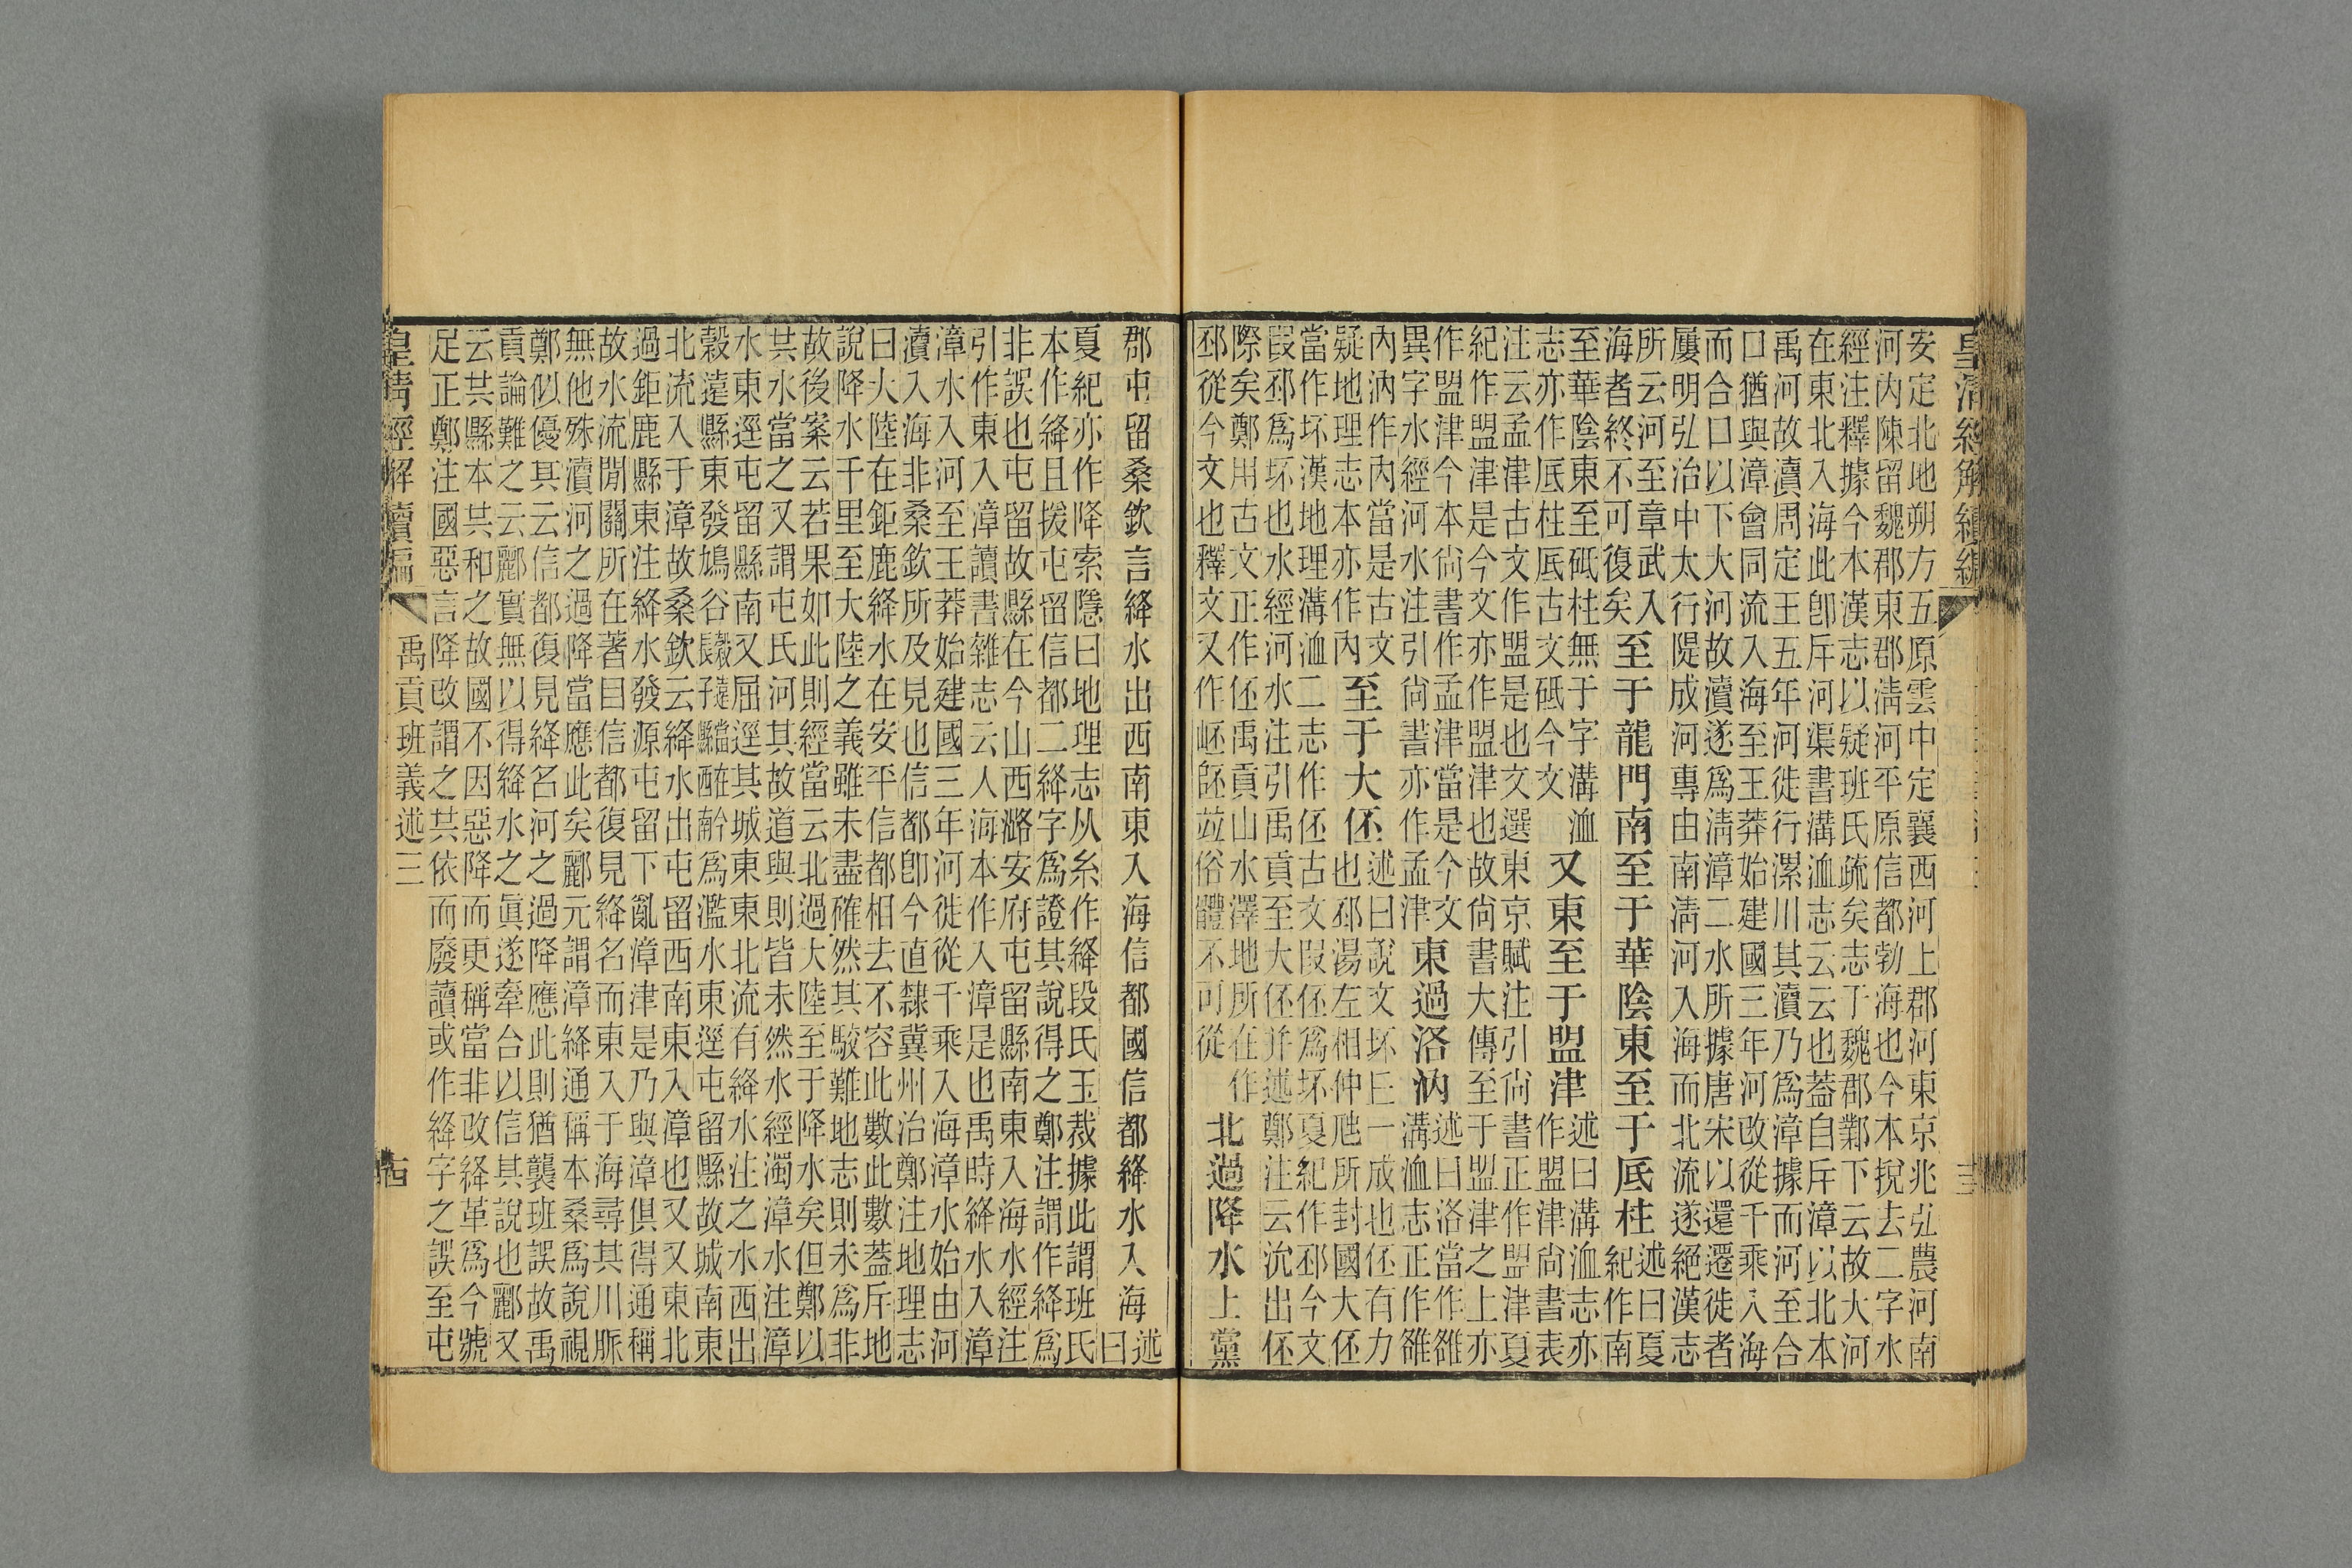 皇淸經解續編
安定北地朔方五原雲中定襄西河上郡河東京兆弘農河南
河內陳留魏郡東郡淸河平原信都勃海也今本挩去二字水
經注釋據今本漢志以疑班氏疏矣志于魏郡鄴下云故大河
在東北入海此卽斥河渠書溝洫志云云也蓋自斥漳以北本
禹河故瀆周定王五年河徙行漯川其瀆乃爲漳據而河至合
口猶與漳會同流入海至王莽始建國三年河改從千乘入海
而合口以下大河故瀆遂爲淸漳二水所據唐宋以還遷徙者
屢明弘治中太行隄成河專由南淸河入海而北流遂絕漢志
所云河至章武入
海者終不可復矣
至于龍門南至于華陰東至于厎柱
述曰夏
紀作南
至華陰東至砥柱無于字溝洫
志亦作底柱底古文砥今文
又東至于盟津
述曰溝洫志亦
作盟津尚書表
注云孟津古文作盟是也文選東京賦注引尚書正作盟津夏
紀作盟津是今文亦作盟津也故尚書大傳至于盟津之上亦
作盟津今本尚書作孟津當是今文
異字水經河水注引尚書亦作孟津
東過洛汭
述曰洛當作雒
溝洫志正作雒
內汭作內當是古文
疑地理志本亦作內
至于大伾
述曰說文坏曰一成也伾有力
也邳湯左相仲虺所封國大伾
當作坏漢地理溝洫二志作伾古文叚伾爲坏夏紀作邳今文
叚邳爲坏也水經河水注引禹貢至大伾并述鄭注云沇出伾
際矣鄭用古文正作伾禹貢山水澤地所在作
邳從今文也釋文又作岯㔻竝俗體不可從
北過降水
上黨
郡屯留桑欽言絳水出西南東入海信都國信都絳水入海
述曰
夏紀亦作降索隱曰地理志从糸作絳段氏玉裁據此謂班氏
本作絳且援屯留信都二絳字爲證其說得之鄭注謂作絳爲
非誤也屯留故縣在今山西潞安府屯留縣南東入海水經注
引作東入漳讀書雜志云人海本作入漳是也禹時絳水入漳
漳水入河至王莽始建國三年河徙從千乘入海漳水始由河
瀆入海非桑欽所及見也信都卽今直隸冀州治鄭注地理志
曰大陸在鉅鹿絳水在安平信都相去不容此數此數蓋斥地
說降水千里至大陸之義雖未盡確然其駮難地志則未爲非
故後案云若果如此則經當云北過大陸至于降水矣但鄭以
其水當之又謂屯氏河其故道與則皆未然水經濁漳水注漳
水東逕屯留縣南又屈逕其城東東北流有絳水注之水西出
穀遠縣東發鳩谷穀遠當長子縣酈斠爲濫水東逕屯留縣故城南東
北流入于漳故桑欽云絳水出屯留西南東入漳也又又東北
過鉅鹿縣東注絳水發源屯留下亂漳津是乃與漳俱得通稱
故水流閒關所在著曰信都復見絳名而東入于海尋其川脈
無他殊瀆河之過降當應此矣酈元謂漳絳通稱本桑爲說視
鄭似優其云信都復見絳名河之過降應此則猶襲班誤故禹
貢論難之云酈實無以得絳水之眞遂牽合以信其說也酈又
云共縣本共和之故國不因惡降而更稱當非改絳革爲今號
足正鄭注國惡言降改謂之共依而廢讀或作絳字之誤至屯
皇淸經解續編
禹貢班義述三
十四